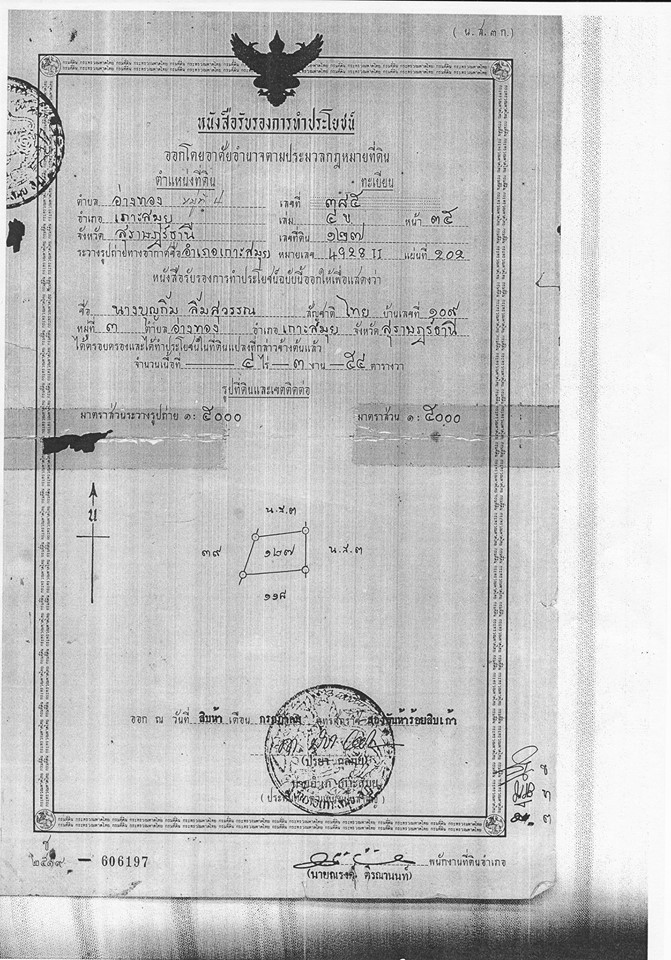 ( น.ส.๓ก.)
หนังสือรับรองการทำประโยชน์
ออกโดยอาศัยอำนาจตามประมวลกฎหมายที่ดิน
ตำแหน่งที่ดิน ทะเบียน
ตำบล อ่างทอง เลขที่ ๓๘๕
อำเภอ เกาะสมุย เล่ม ๔ ข หน้า ๓๕
จังหวัด สุราษฎร์ธานี เลขที่ดิน ๑๒๗
ระวางรูปถ่ายทางอากาศชื่อ อำเภอเกาะสมุย หมายเลข 4928 II แผ่นที่ 202
หนังสือรับรองการทำประโยชน์ฉบับนี้ออกให้เพื่อแสดงว่า
ชื่อ นางบุญกิ้ม ลิ้มสุวรรณ สัญชาติ ไทย บ้านเลขที่ ๑๐๙
หมู่ที่ ๓ ตำบล อ่างทอง อำเภอ เกาะสมุย จังหวัด สุราษฎร์ธานี
ได้ครอบครองและได้ทำประโยชน์ในที่ดินแปลงที่กล่าวข้างต้นแล้ว
จำนวนเนื้อที่ ๔ ไร่ ๓ งาน ๕๔ ตารางวา
รูปที่ดินและเขตติดต่อ
มาตราส่วนระวางรูปถ่าย ๑: ๕๐๐๐ มาตราส่วน ๑: ๕๐๐๐
น
น.ส.๓
๓๙ ๑๒๗ น.ส.๓
๑๑๘
ออก ณ วันที่ สิบห้า เดือน กรกฎาคม พุทธศักราช สองพันห้าร้อยสิบเก้า
นายอำเภอเกาะสมุย
ช
๒๕๑๙ — 606197
พนักงานที่ดินอำเภอ
(นายณรงค์ ติรณานนท์)